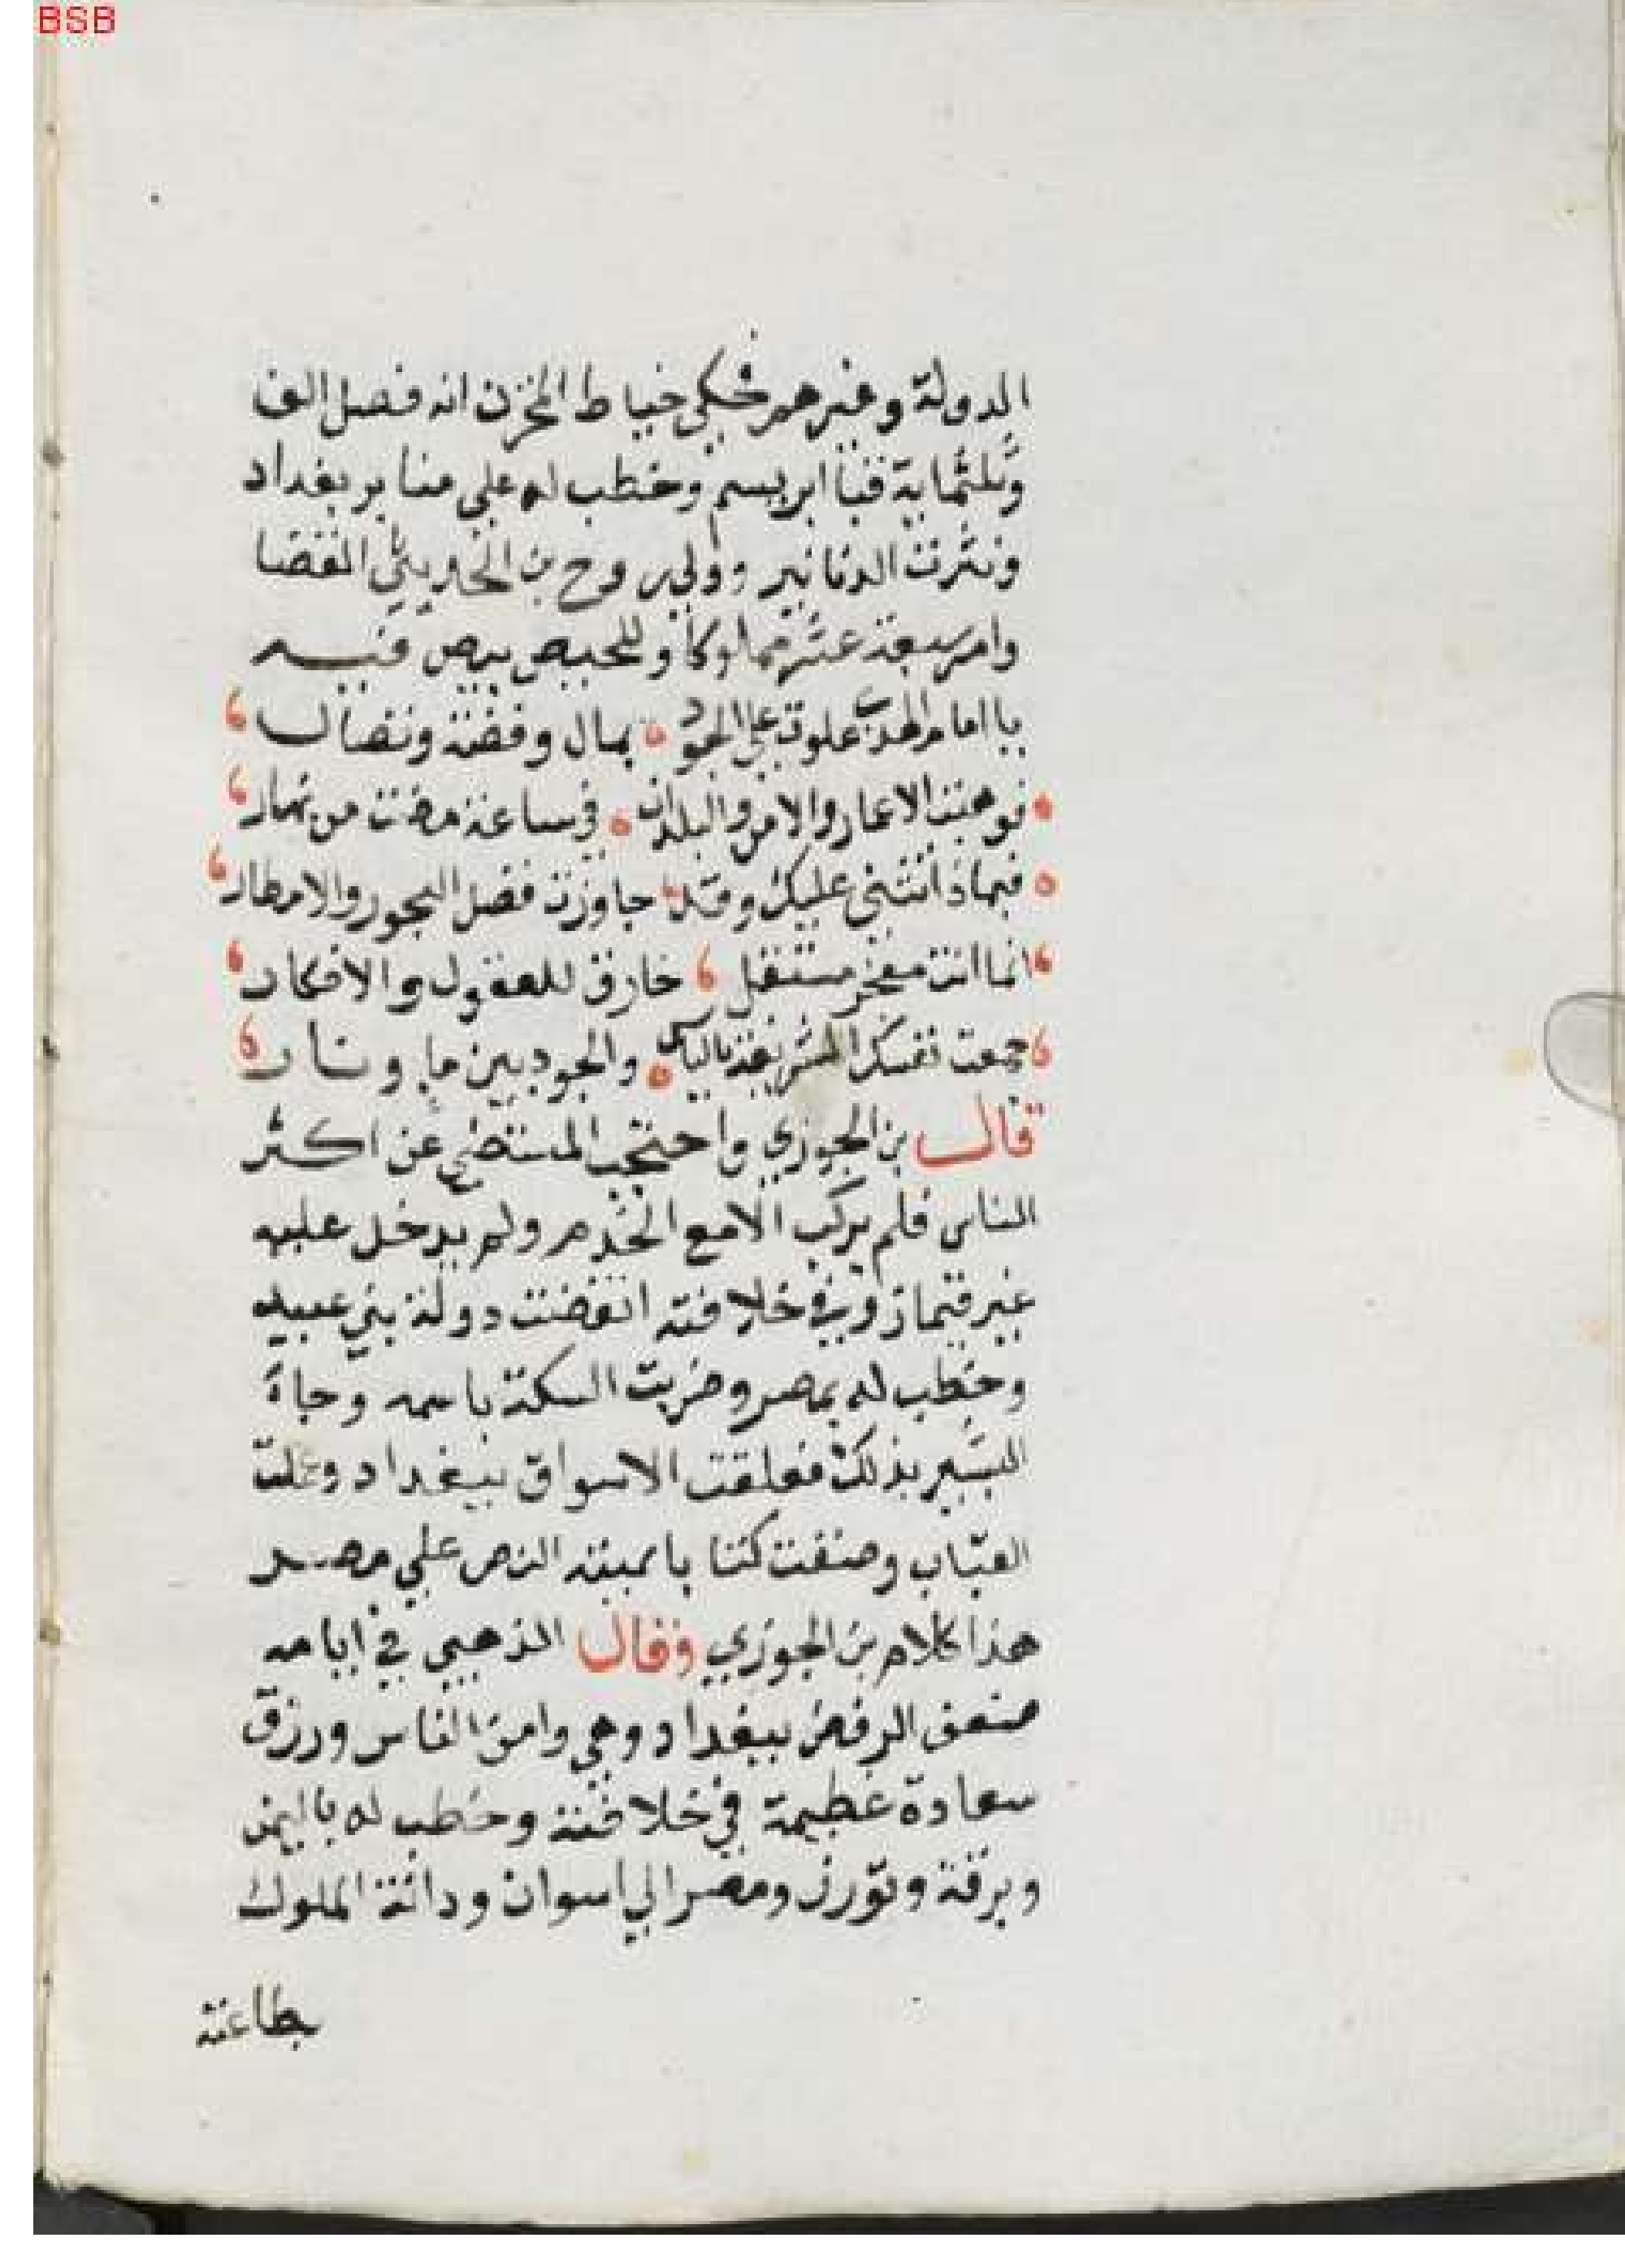 BSB
الدولة وغيرهم فحكى خياط المخزن انه فصل الف
وثلثماية قبا ابريسم وخطب له علي منابر بغداد
ونثرت الدنانير وولي روح بن الحديثي القضا
وامر سبعة عشر مملوكا وللحيص بيص فيه
يا امام الهدى علوت علي الجود بمال وفضة ونضار
فوهبت الاعمار والامن والبلدان في ساعة مضت من نهار
فبماذا نثني عليك وقد جاوزت فضل البحور والامطار
انما انت معجز مستقل خارق للعقول والافكار
جمعت نفسك الشريفة بالباس والجود بين ما ونار
قال بن الجوزي واحتجب المستضي عن اكثر
الناس فلم يركب الامع الخدم ولم يدخل عليه
غير قيماز وفي خلافته انقضت دولة بني عبيد
وخطب له بمصر وضربت السكة باسمه وجاة
البشير بذلك فعلقت الاسواق ببغداد وعملت
القباب وصنفت كتابا سميته النصر علي مصر
هذا كلام بن الجوزي وقال الذهبي في ايامه
ضعف الرفض ببغداد وهي وامن الناس ورزق
سعادة عظيمة في خلافته وخطب له باليمن
وبرقة وتورز ومصر الي اسوان ودانت الملوك
بطاعته